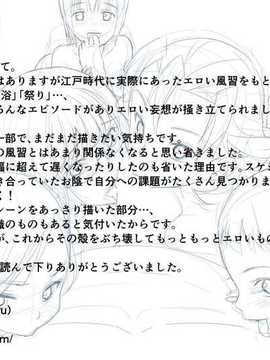 て。
はありますが江戸時代に実際にあったエロい風習をもと
浴」「祭り」…、
らんなエピソードがありエロい妄想が掻き立てられまし
一部で、まだまだ描きたい気持ちです。
の風習とはあまり関係なくなると思い省きました。
幅に超えて遅くなったりしたのも省いた理由です。スケジ
き合っていたお陰で自分への課題がたくさん見つかりま
く！
シーンをあっさり描いた部分…、
識のものもあると気付いたから
が、これからその殻をぶち壊してもっともっとエロいもの
読んで下りありがとうございました。
u)
m/